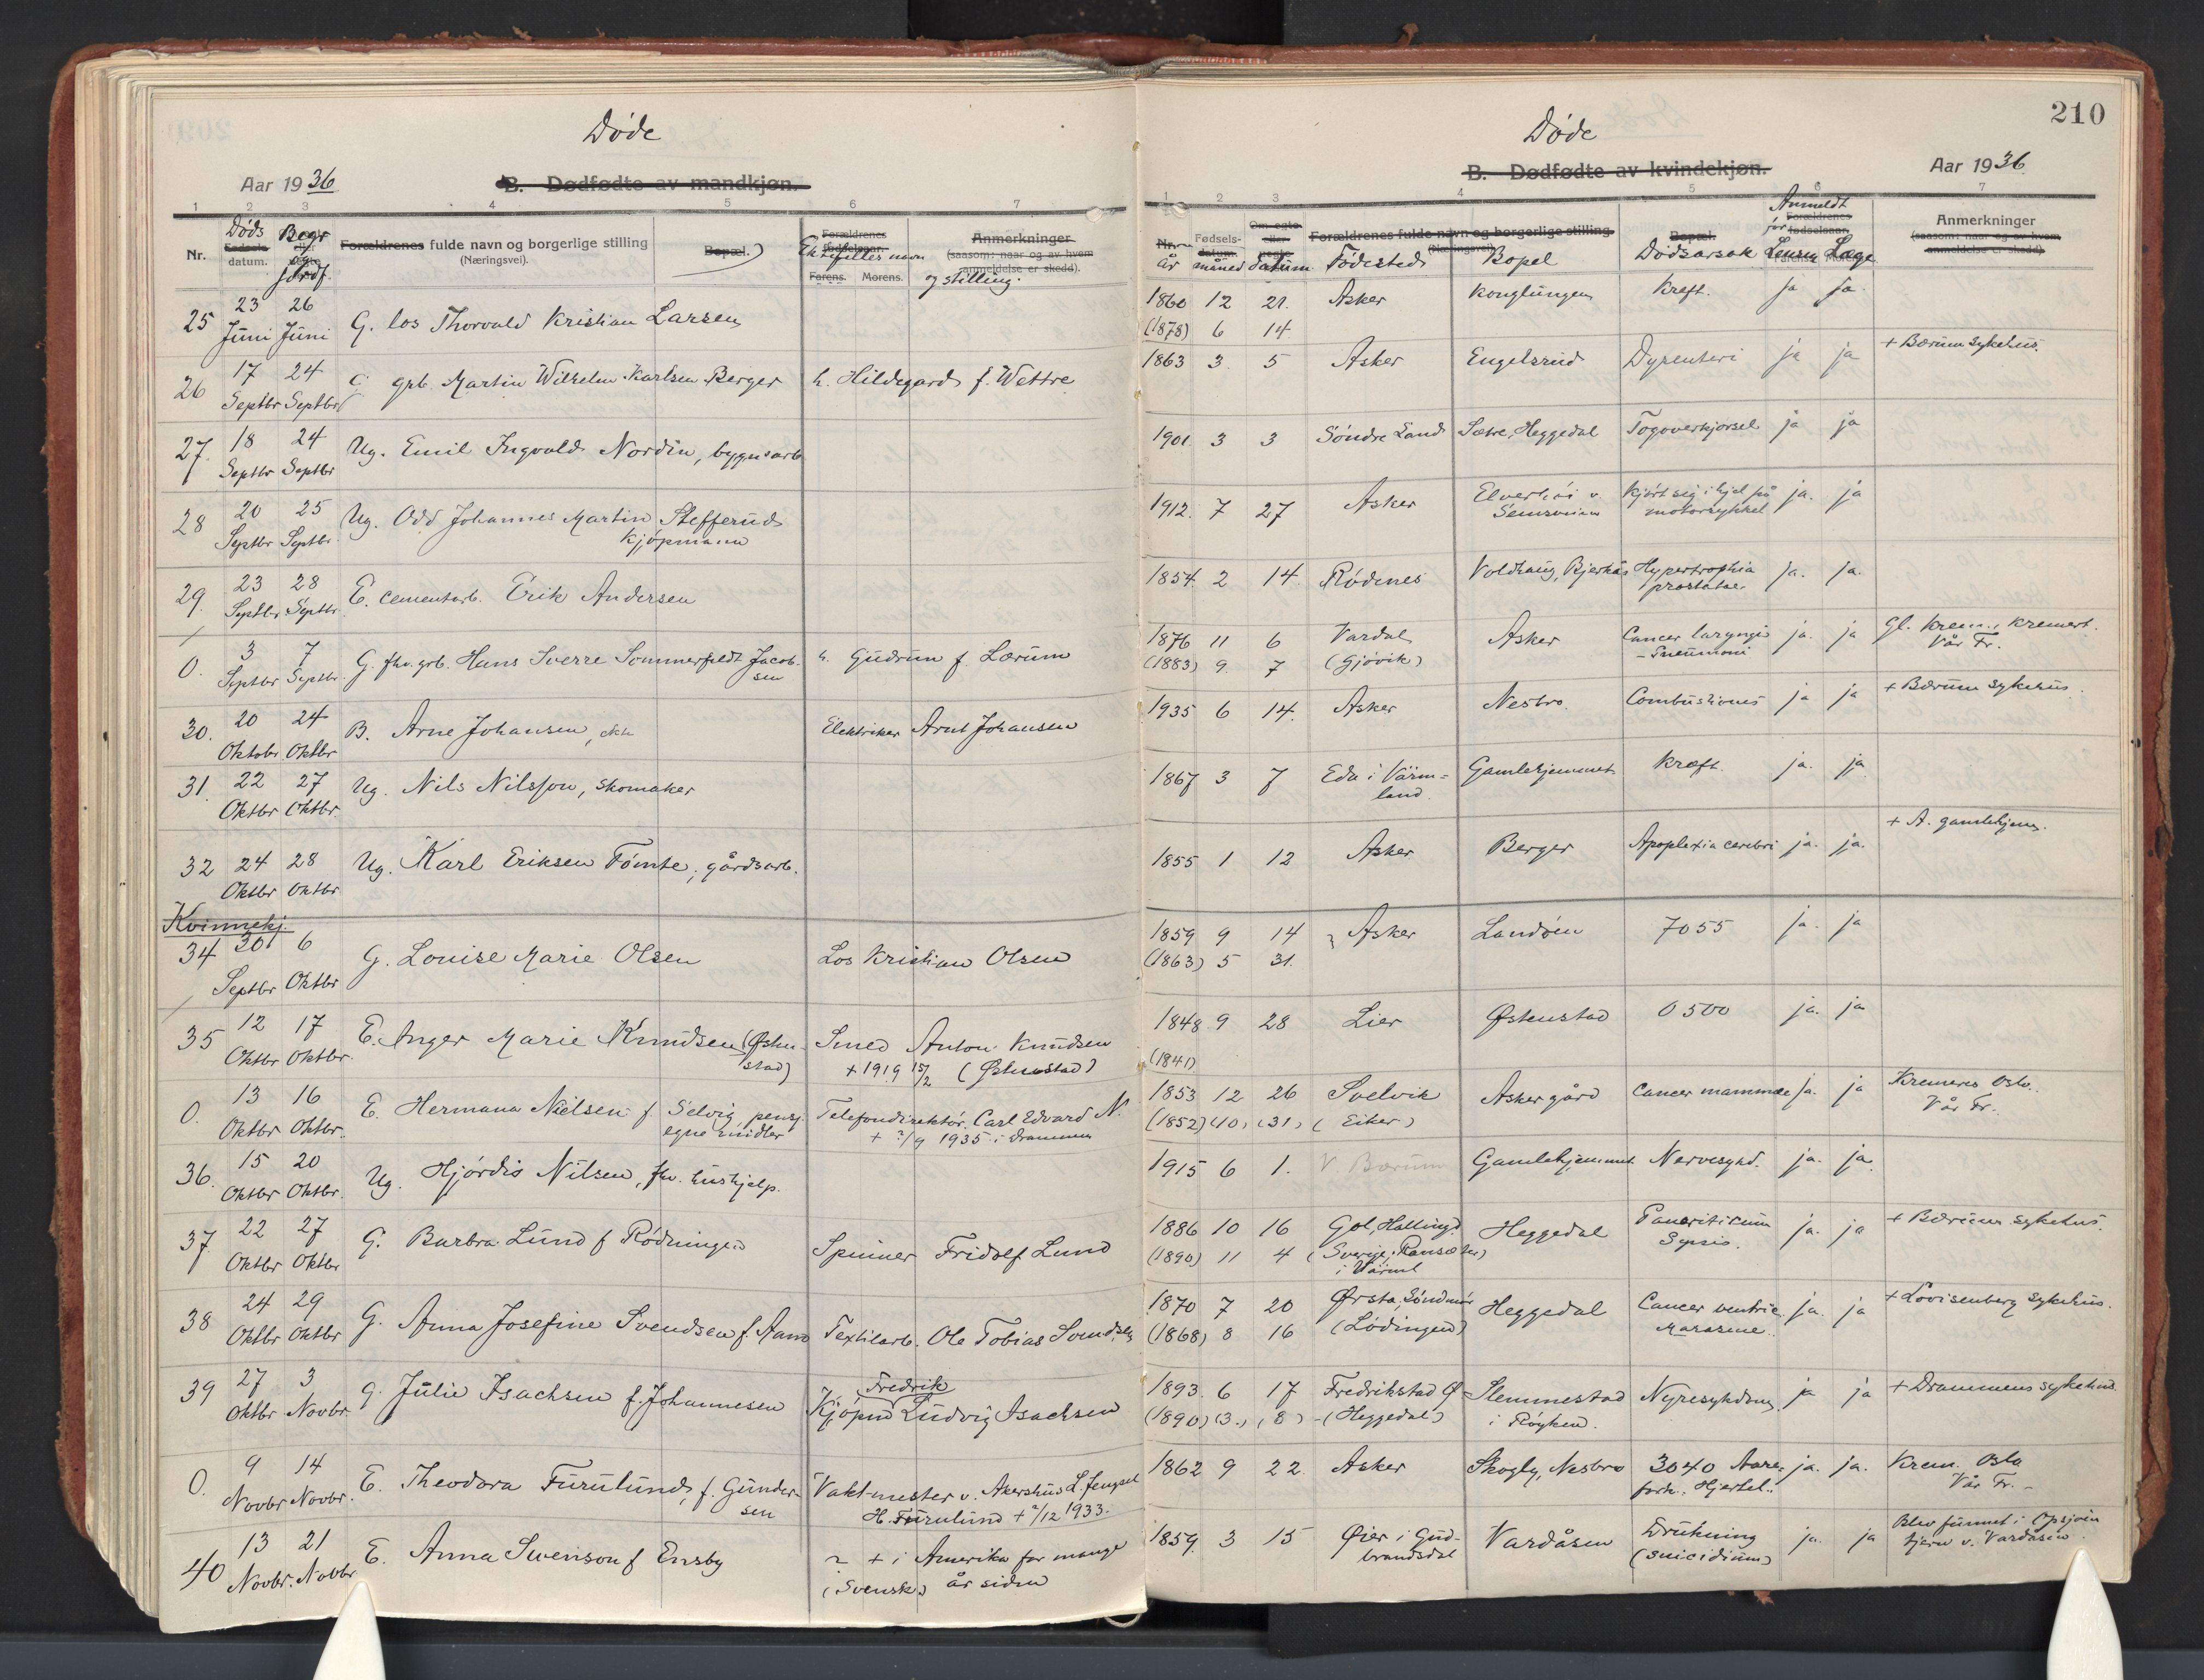 Døde
Aar 1936
B. Dødfødte av mandkjøn.
1 2 3 4 5 6 7
Nr.
Døds
datum.
Begr
Jordf.
Forældrenes fulde navn og borgerlige stilling
(Næringsvei).
Bopæl.
Forældrenes
fødselsaar.
Farens. Morens.
Ektefelles navn
og stilling.
Anmerkninger
(saasom: naar og av hvem
anmeldelse er skedd).
25 23 Juni 26 Juni G. los Thorvald Kristian Larsen
26 17 Septbr 24 Septbr G. grb. Martin Wilhelm Karlsen Berger h. Hildegard f. Wettre
27. 18 Septbr 24 Septbr Ug. Emil Ingvald Nordin, bygnsarb
28 20 Septbr 25 Septbr. Ug. Odd Johannes Martin Stefferud
kjøpmann
29. 23 Septbr 28 Septbr. E. cementarb. Erik Andersen
0. 3 Septbr 7 Septbr. G. fhv. grb. Hans Sverre Sommerfeldt Jacob-
sen h. Gudrun f. Lærum
30. 20 Oktobr 24 Oktbr B. Arne Johansen, Elektriker Arnt Johansen
31. 22 Oktbr 27 Oktbr. Ug. Nils Nilsson, skomaker
32 24 Oktbr 28 Oktbr Ug. Karl Eriksen Tømte, gårdsarb.
Kvinnekj.
34 30 Septbr 6 Oktbr G. Louise Marie Olsen Los Kristian Olsen
35 12 Oktbr 17 Oktbr. E. Inger Marie Knudsen (Østen-
stad) Smed Anton Knudsen
+ 1919 15/2 (Østenstad)
0. 13 Oktbr 16 Oktbr. E. Hermana Nielsen f Selvig pensj.
egne midler Telefondirektør Carl Edvard N.
+ ?/9 1935 i Drammen
36. 15 Oktbr 20 Oktbr. Ug. Hjørdis Nilsen, fhv. hushjelp.
37. 22 Oktbr 27 Oktbr G. Barbra Lund f Rødningen Spinner Fridolf Lund
38 24 Oktbr 29 Oktbr G. Anna Josefine Svendsen f. Aam Textilarb. Ole Tobias Svendsen
39 27 Oktbr 3 Novbr. G. Julie Isachsen f. Johannesen Kjøpm Fredrik Ludvig Isachsen
0. 9 Novbr 14 Novbr. E. Theodora Furulund, f. Gunder-
sen Vaktmester v. Akershus L.fengsel
H. Furulund + 2/12 1933.
40 13 Novbr. 21 Novbr E. Anna Swenson f Ensby ~ + i Amerika for mange
(Svensk) år siden
210
Døde
Aar 1936
B. Dødfødte av kvindekjøn.
1 2 3 4 5 6 7
Nr.
år
Fødsels-
datum.
måned
Om egte
eller
uegte.
datum
Forældrenes fulde navn og borgerlige stilling
(Næringsvei).
Fødested
Bopel
Bopæl.
Dødsårsak
Anmeldt
for
Forældrenes
fødselsaar.
Farens. Morens.
Lensm Læge
Anmerkninger
(saasom: naar og av hvem
anmeldelse er skedd).
1860 12 21. Asker Konglungen kreft. ja ja.
(1878) 6 14.
1863 3 5 Asker Engelsrud Dysenteri ja ja + Bærum sykehus.
1901 3 3 Søndre Land Sætre, Heggedal Togoverkjørsel ja ja
1912. 7 27 Asker Elverhøi v.
Semsveien Kjørt sig i hjel på
motorsykkel ja. ja
1854 2 14 Rødenes Voldhaug, Bjerkås Hypertrophia
prostatae. ja. ja.
1876 11 6 Vardal Asker Cancer laryngis ja. ja Gl. Krem., kremert.
(1883) 9. 7 (Gjøvik) - Pneumoni Vår Fr.
1935 6 14. Asker Nesbro. Combustiones ja ja + Bærum sykehus.
1867 3 7 Eda i Värm-
land. Gamlehjemmet kræft. ja. ja
1855 1 12 Asker Berger Apoplexia cerebri ja. ja. + A. gamlehjem.
1859 9 14 Asker Landøen 7055 ja. ja
(1863) 5 31.
1848 9 28 Lier Østenstad 0500 ja. ja
(1841)
1853 12 26 Svelvik Asker gård Cancer mammae ja. ja Kremeres Oslo.
(1852) (10) (31) (Eiker) Vår Fr.
1915 6 1. V. Bærum Gamlehjemmet Nervesykd. ja. ja.
1886 10 16 Gol, Hallingd. Heggedal Pancriticum
Sepsis. ja. ja + Bærum sykehus.
(1890) 11 4 (Sverige, Ransäter)
i Värml
1870 7 20 Ørsta, Søndmør Heggedal Cancer ventric. ja. ja + Lovisenberg sykehus.
(1868) 8 16 (Lødingen) Marasme.
1893 6 17 Fredrikstad Ø Slemmestad Nyresykdom ja ja + Drammens sykehus.
(1890) (3.) (8) (Heggedal) i Røyken.
1862 9 22. Asker Skogly, Nesbro 3040 Aare-
fork. Hjertel. ja. ja. Krem. Oslo
Vår Fr.
1859. 3 15 Øier i Gud-
brandsdal Vardåsen Drukning
(suicidium) ja. ja Blev funnet i Opsjøen
tjern v. Vardåsen